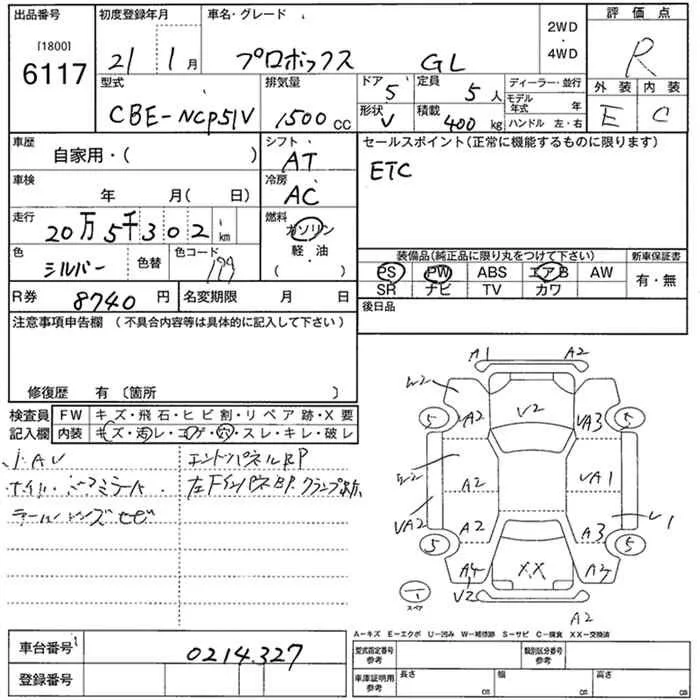 出品番号 初度登録年月 車名・グレード 2WD ・ 4WD 評価点
[1800]
6117 21 1月 プロボックス GL R
型式 排気量 ドア 定員 ディーラー・並行 外装 内装
CBE-NCP51V 1500cc 5 5人 モデル年式 年 E C
形状 V 積載 400kg ハンドル 左・右
車歴 自家用・( ) シフト AT セールスポイント(正常に機能するものに限ります)
ETC
車検 年 月( 日) 冷房 AC
走行 20万5千302km 燃料 ガソリン
軽・油
( )
色 シルバー 色替 色コード 199
装備品(純正品に限り丸をつけて下さい) 新車保証書
PS PW ABS エアB AW 有・無
SR ナビ TV カワ
R券 8740円 名変期限 月 日
後日品
注意事項申告欄(不具合内容等は具体的に記入して下さい)
修復歴 有(箇所 )
検査員記入欄 FW キズ・飛石・ヒビ割・リペア跡・X要
内装 キズ・汚レ・コゲ・穴・スレ・キレ・破レ
エンドパネルRP
A1 A2
W2 A2 V2 VA3
5 5
A2 VA1
VA2 A2 A3 V1
5 5
A4 XX A2
V2
スペア
A2
A-キズ E-エクボ U-凹み W-補修跡 S-サビ C-腐食 XX-交換済
車台番号 0214327
登録番号
型式指定番号 参考 類別区分番号 参考
車庫証明用 参考 長さ cm 幅 cm 高さ cm